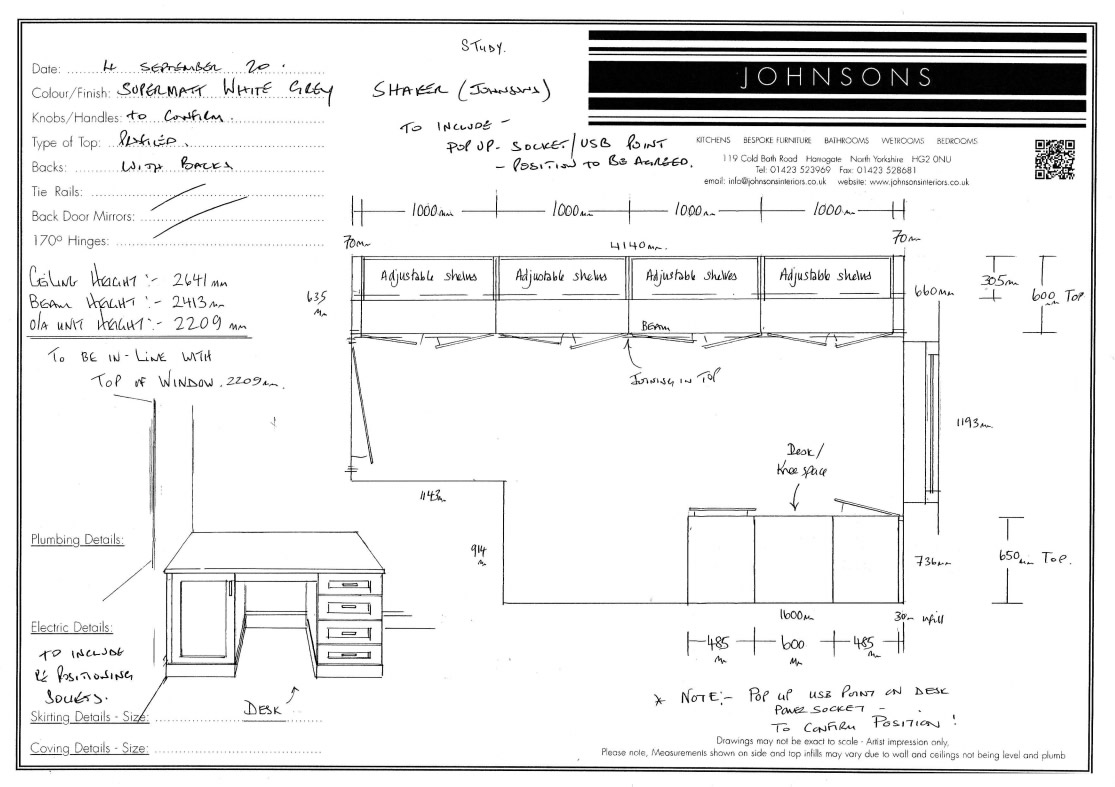 STUDY.
Date: 4 SEPTEMBER 20.
Colour/Finish: SUPERMATT WHITE GREY
Knobs/Handles: TO CONFIRM.
Type of Top:
Backs: WITH BACKS
Tie Rails:
Back Door Mirrors:
170º Hinges:
SHAKER (JOHNSONS)
TO INCLUDE -
POP UP - SOCKET/USB POINT
- POSITION TO BE AGREED.
JOHNSONS
KITCHENS BESPOKE FURNITURE BATHROOMS WETROOMS BEDROOMS
119 Cold Bath Road Harrogate North Yorkshire HG2 0NU
Tel: 01423 523969 Fax: 01423 528681
email: info@johnsonsinteriors.co.uk website: www.johnsonsinteriors.co.uk
CEILING HEIGHT :- 2641mm
BEAM HEIGHT :- 2413mm
O/A UNIT HEIGHT :- 2209mm
TO BE IN-LINE WITH
TOP OF WINDOW. 2209mm.
1000mm 1000mm 1000mm 1000mm
70mm 4140mm. 70mm
Adjustable shelves Adjustable shelves Adjustable shelves Adjustable shelves
635
mm
660mm
305mm
600 TOP
BEAM
JOINING IN TOP
1193mm
Desk/
Knee space
1143mm
914
mm
736mm
650mm TOP.
1600mm
30mm infill
485
mm
600
mm
485
mm
Plumbing Details:
Electric Details:
TO INCLUDE
RE POSITIONING
SOCKETS.
Skirting Details - Size:
Coving Details - Size:
DESK
* NOTE:- POP UP USB POINT ON DESK
POWER SOCKET -
TO CONFIRM POSITION!
Drawings may not be exact to scale - Artist impression only,
Please note, Measurements shown on side and top infills may vary due to wall and ceilings not being level and plumb